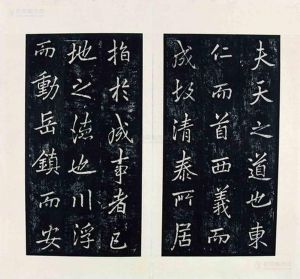 夫天之道也東
仁而首西義而
成故清泰所居
指於咸事者已
地之德也川浮
而動岳鎮而安